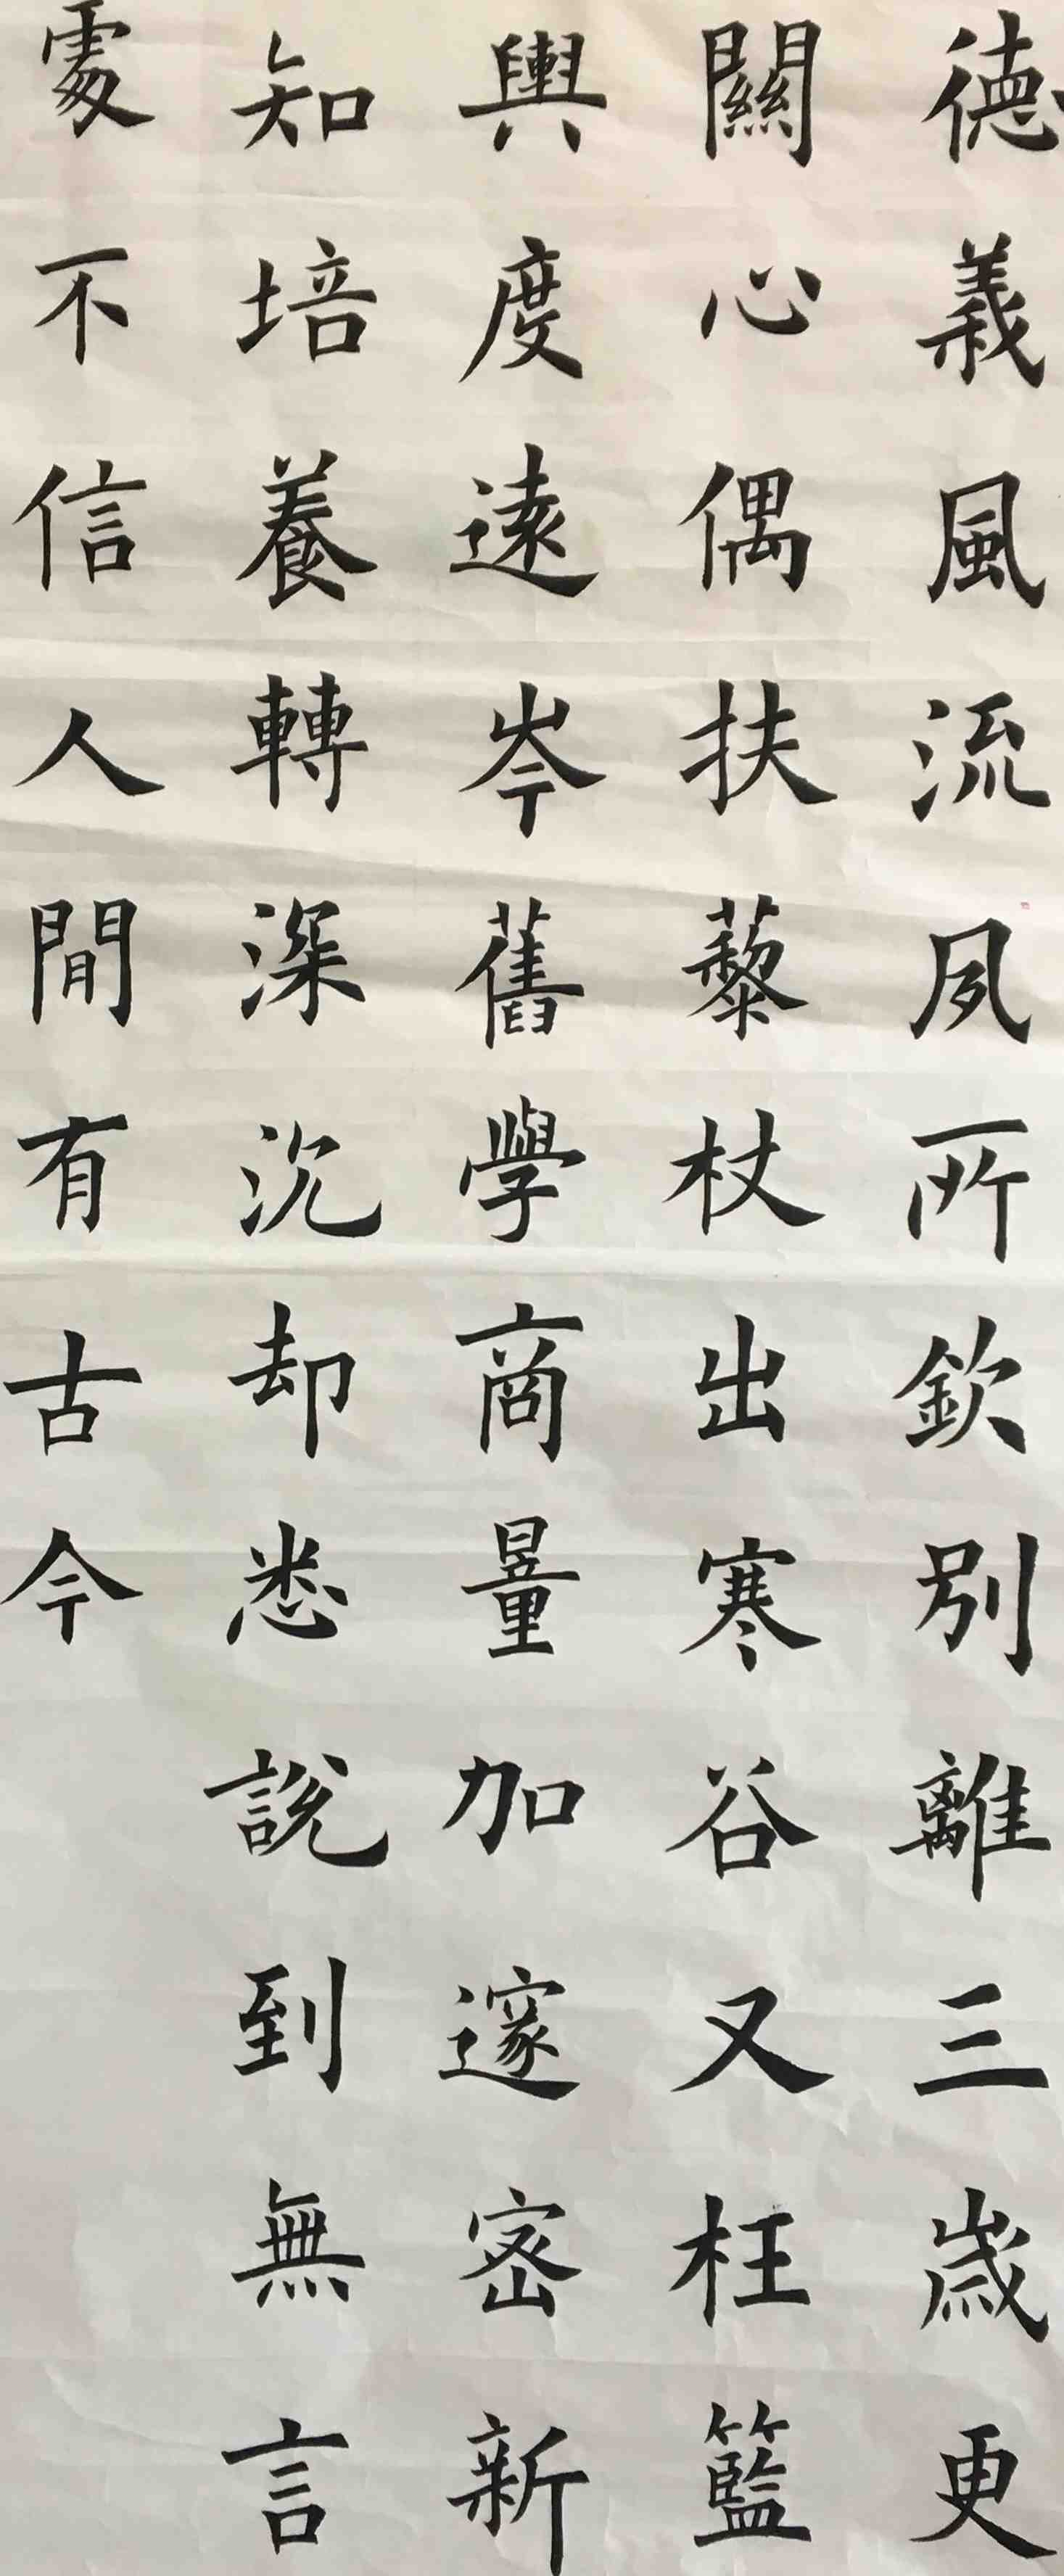 德義風流夙所欽別離三歲更
關心偶扶藜杖出寒谷又枉籃
輿度遠岑舊學商量加邃密新
知培養轉深沉却悉說到無言
處不信人間有古今